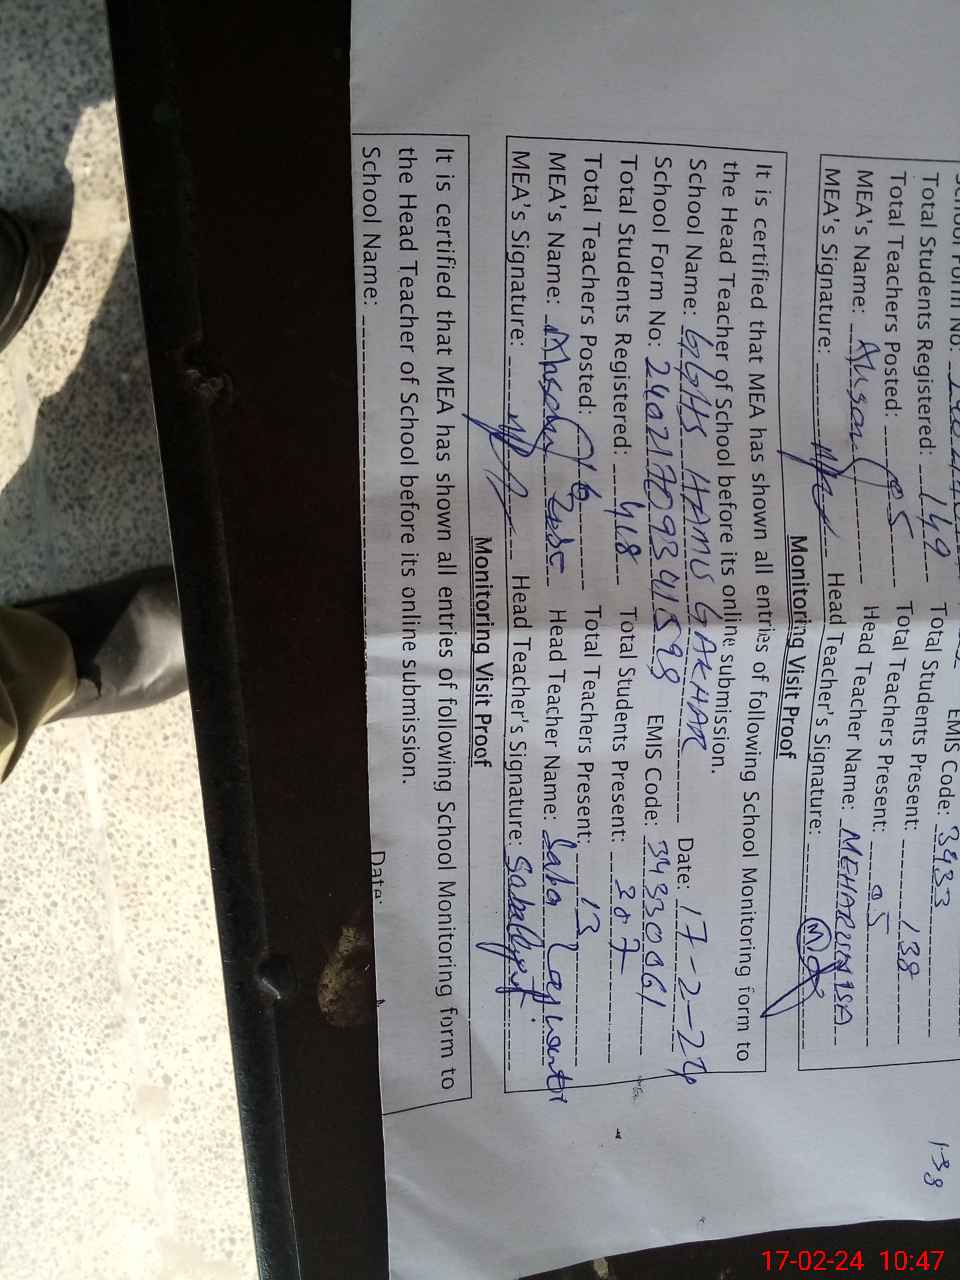 Total Students Registered: 149 Total Students Present: 138
Total Teachers Posted: 05 Total Teachers Present: 05
MEA's Name: Head Teacher Name: MEHARUNNISA
MEA's Signature: Head Teacher's Signature:
138
Monitoring Visit Proof
It is certified that MEA has shown all entries of following School Monitoring form to
the Head Teacher of School before its online submission.
School Name: GGHS HAMU GAKHAR Date: 17-2-24
School Form No: EMIS Code: 34330061
Total Students Registered: 418 Total Students Present: 307
Total Teachers Posted: Total Teachers Present: 13
MEA's Name: Head Teacher Name: Saba
MEA's Signature: Head Teacher's Signature:
Monitoring Visit Proof
It is certified that MEA has shown all entries of following School Monitoring form to
the Head Teacher of School before its online submission.
School Name: Date:
17-02-24 10:47